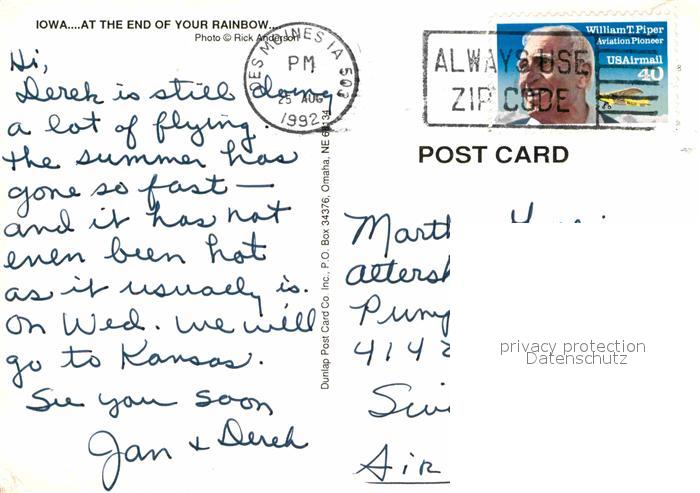 IOWA....AT THE END OF YOUR RAINBOW...
Photo © Rick Anderson
Hi,
Derek is still doing
a lot of flying.
the summer has
gone so fast —
and it has not
even been hot
as it usually is.
On Wed. we will
go to Kansas.
See you soon
Jan + Derek
Dunlap Post Card Co. Inc., P.O. Box 34376, Omaha, NE 68134
DES MOINES IA 503
PM
25 AUG
1992
ALWAYS USE
ZIP CODE
William T. Piper
Aviation Pioneer
USAirmail
40
POST CARD
Mart
Pum
414
Air
privacy protection
Datenschutz